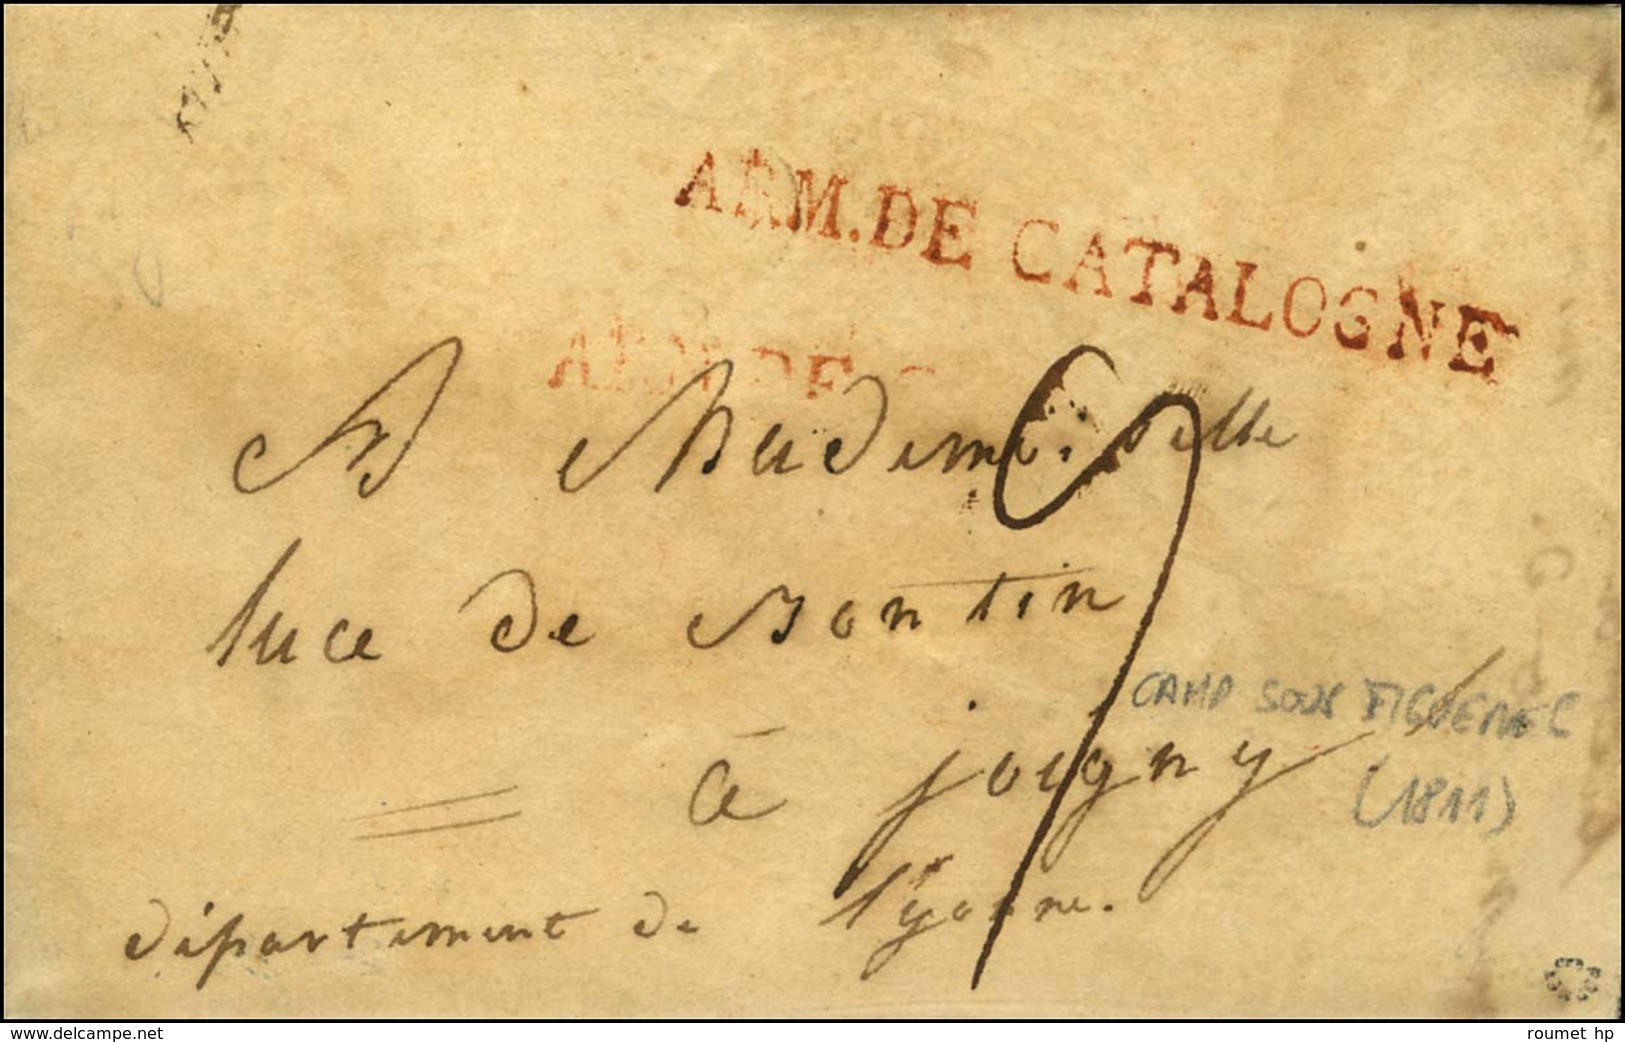 ARM.DE CATALOGNE
ARM.DE C
A Mademoiselle
luce de Bontin
à joigny
CAMP SOUS FIGUERES
(1811)
département de l'yonne.
www.delcampe.net
roumet hp